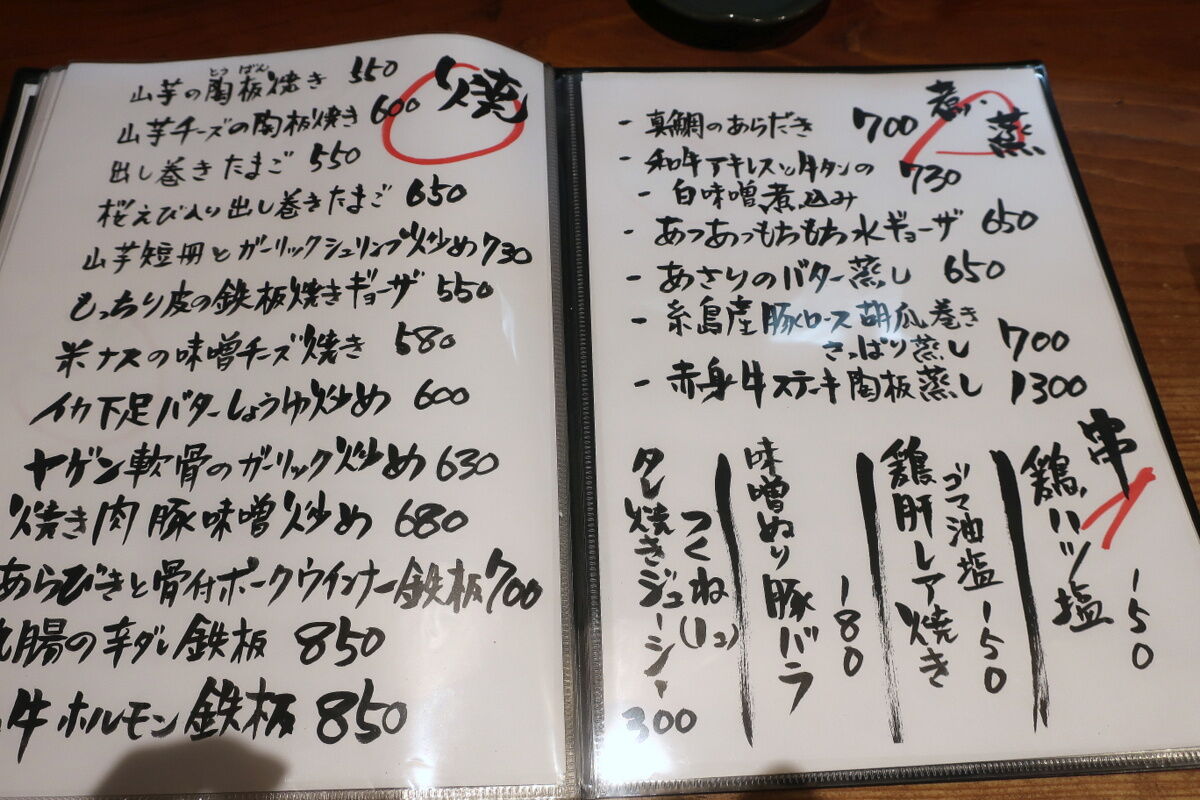 焼
山芋の陶板焼き 550
とう ばん
山芋チーズの陶板焼き 600
出し巻きたまご 550
桜えび入り出し巻きたまご 650
山芋短冊とガーリックシュリンプ炒め 730
もっちり皮の鉄板焼きギョーザ 550
米ナスの味噌チーズ焼き 580
イカ下足バターしょうゆ炒め 600
ヤゲン軟骨のガーリック炒め 630
焼き肉豚味噌炒め 680
あらびきと骨付ポークウインナー鉄板 700
腸の辛ダレ鉄板 850
牛ホルモン鉄板 850
煮・蒸
- 真鯛のあらだき 700
- 和牛アキレスと牛タンの
- 白味噌煮込み 730
- あつあつもちもち水ギョーザ 650
- あさりのバター蒸し 650
- 糸島産豚ロース胡瓜巻き
さっぱり蒸し 700
- 赤身牛ステーキ陶板蒸し 1300
串
鶏ハツ塩 150
ゴマ油塩 150
鶏肝レア焼き
味噌ぬり豚バラ 180
つくね(1コ)
タレ焼きジューシー 300